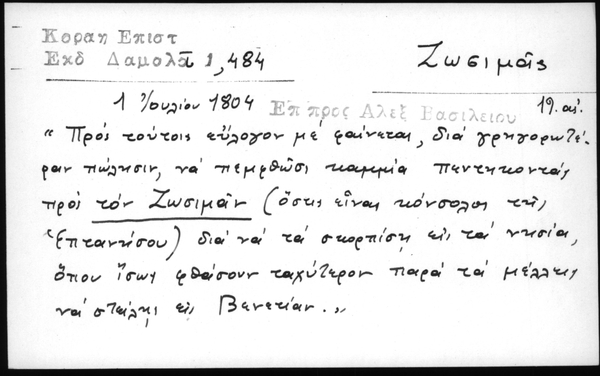 Κοραη Επιστ
Εκδ Δαμαλᾶ 1, 484
Ζωσιμᾶς
1 Ἰουλίου 1804
Επ προς Αλεξ Βασιλειου
19. αἰ.
"Πρός τούτοις εὔλογον μέ φαίνεται, διά γρηγορωτέ-
ραν πώλησιν, νά πεμφθῶσι καμμία πεντηκοντάς
πρός τόν Ζωσιμᾶν (ὅστις εἶναι κόνσολος τῆς
Ἑπτανήσου) διά νά τά σκορπίσῃ εἰς τά νησία,
ὅπου ἴσως φθάσουν ταχύτερον παρά τά μέλλεις
νά στείλῃς εἰς Βενετίαν."